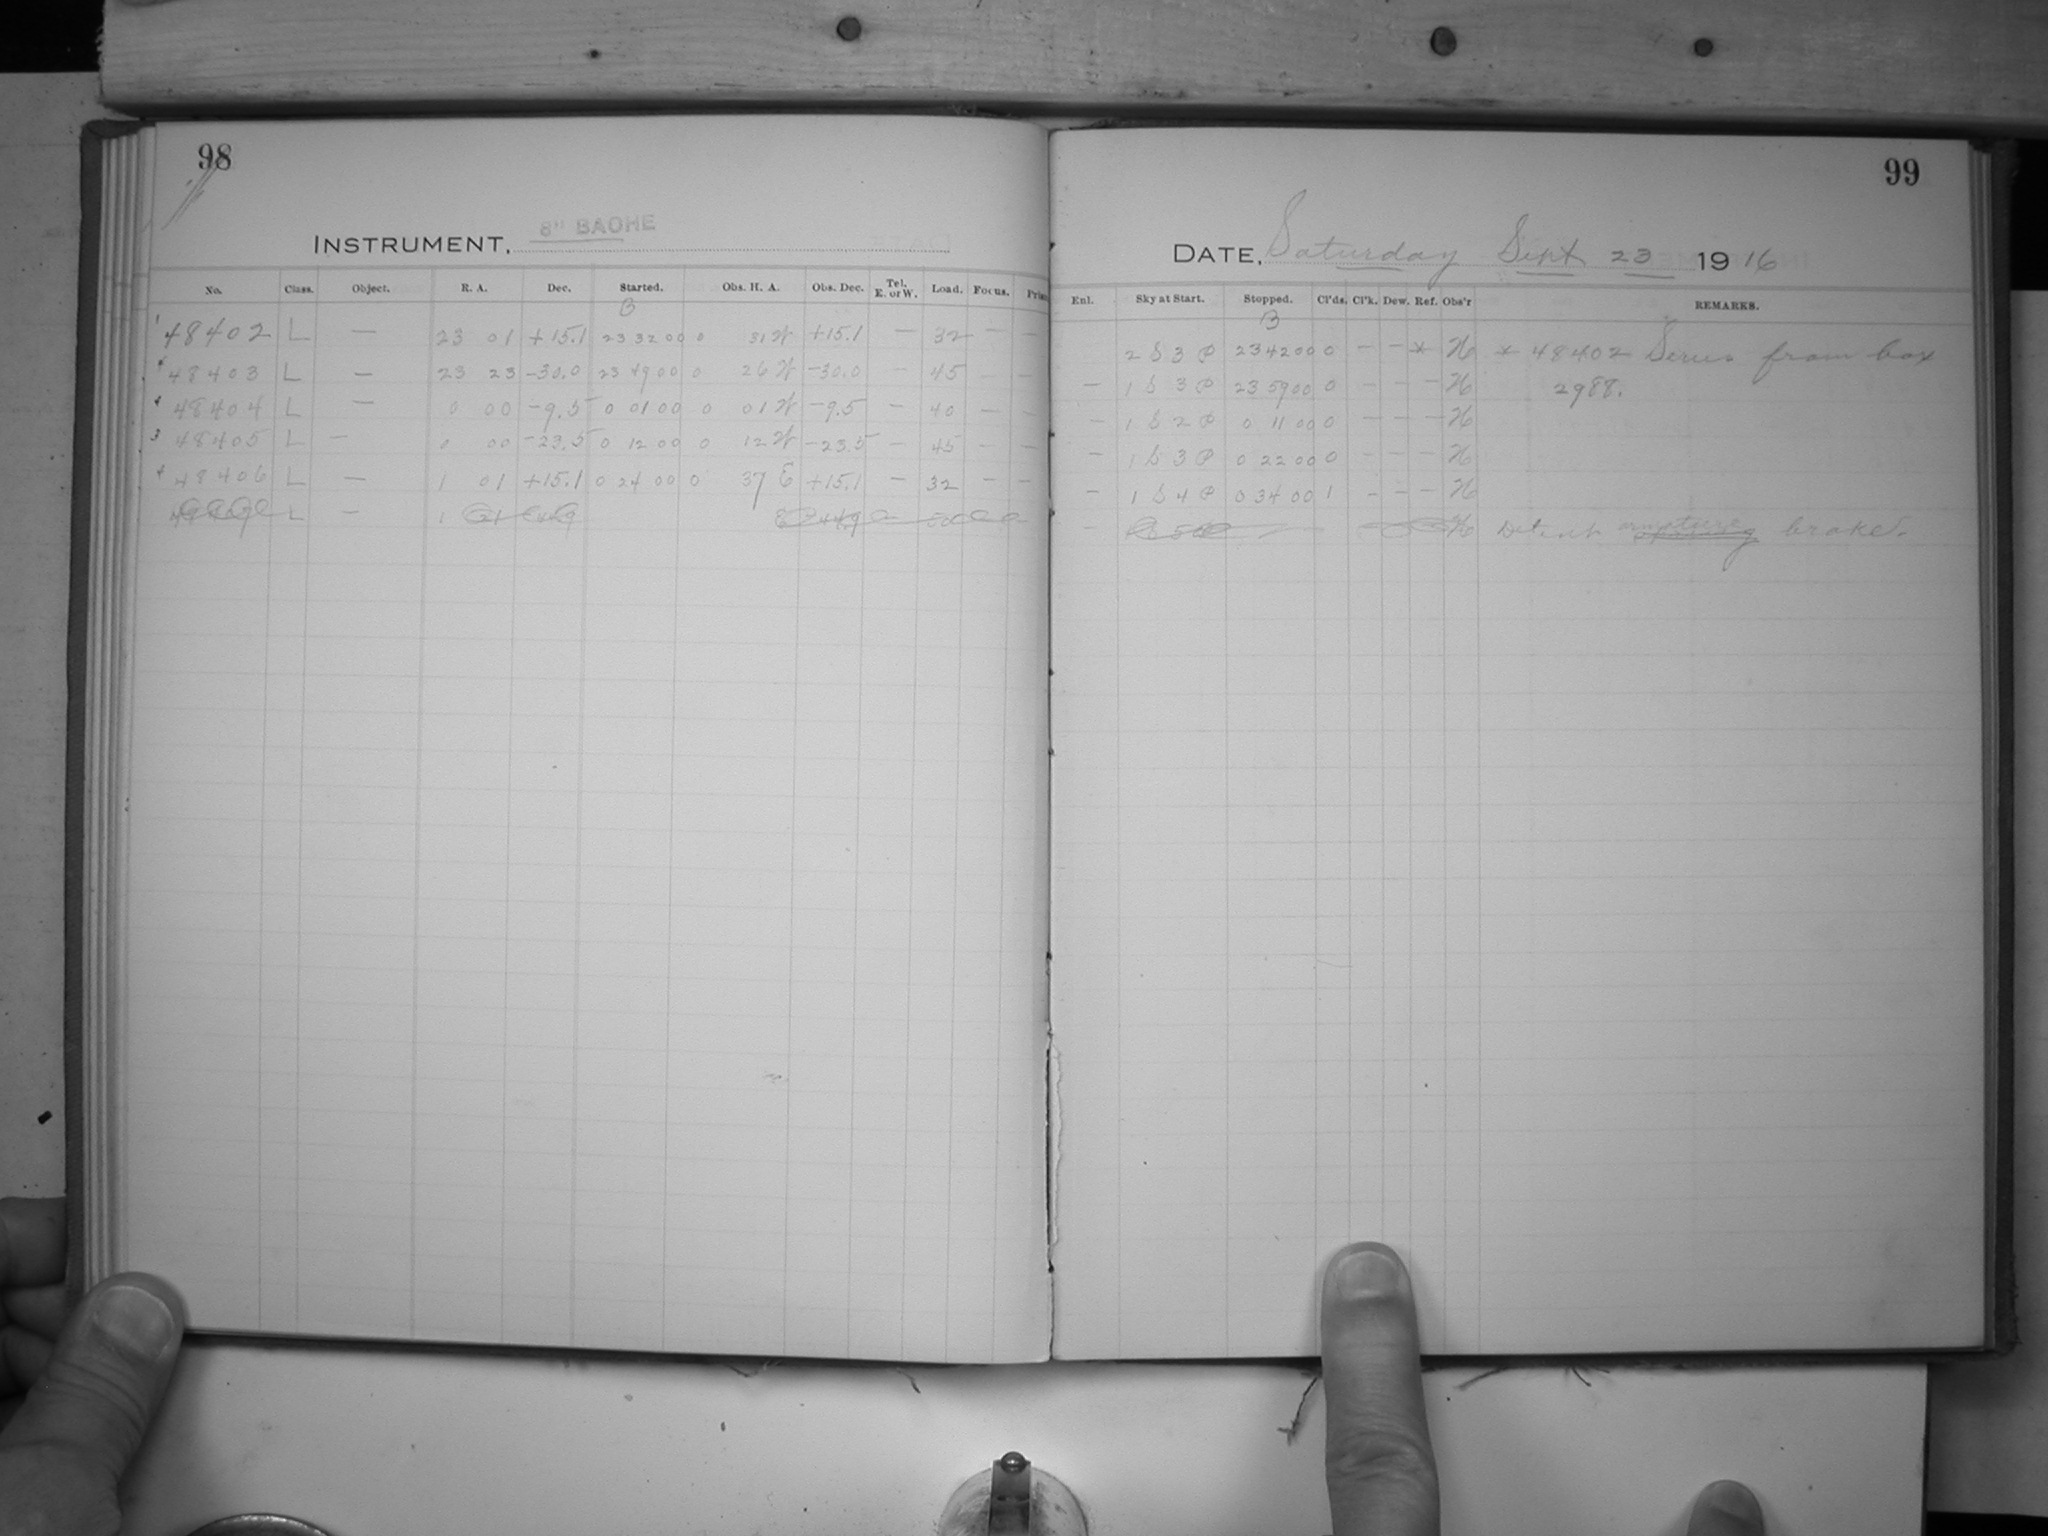 98
INSTRUMENT, 8" BACHE
No. Class. Object. R. A. Dec. Started. Obs. H. A. Obs. Dec. Tel. E. or W. Load. Focus.
B
1 48402 L — 23 01 +15.1 23 32 00 0 31 W +15.1 — 32 — —
48403 L — 23 23 -30.0 23 49 00 0 26 W -30.0 — 45 — —
48404 L — 0 00 -9.5 0 01 00 0 01 W -9.5 — 40 — —
3 48405 L — 0 00 -23.5 0 12 00 0 12 W -23.5 — 45 — —
4 48406 L — 1 01 +15.1 0 24 00 0 37 E +15.1 — 32 — —
L — 1
99
DATE, Saturday Sept 23 1916
Enl. Sky at Start. Stopped. Cl'ds. Cl'k. Dew. Ref. Obs'r REMARKS.
B
2 S 3 P 23 42 00 0 — — * H * 48402 Series from box
— 1 S 3 P 23 59 00 0 — — — H 2988.
— 1 S 2 P 0 11 00 0 — — — H
— 1 S 3 P 0 22 00 0 — — — H
— 1 S 4 P 0 34 00 1 — — — H
— H broke.